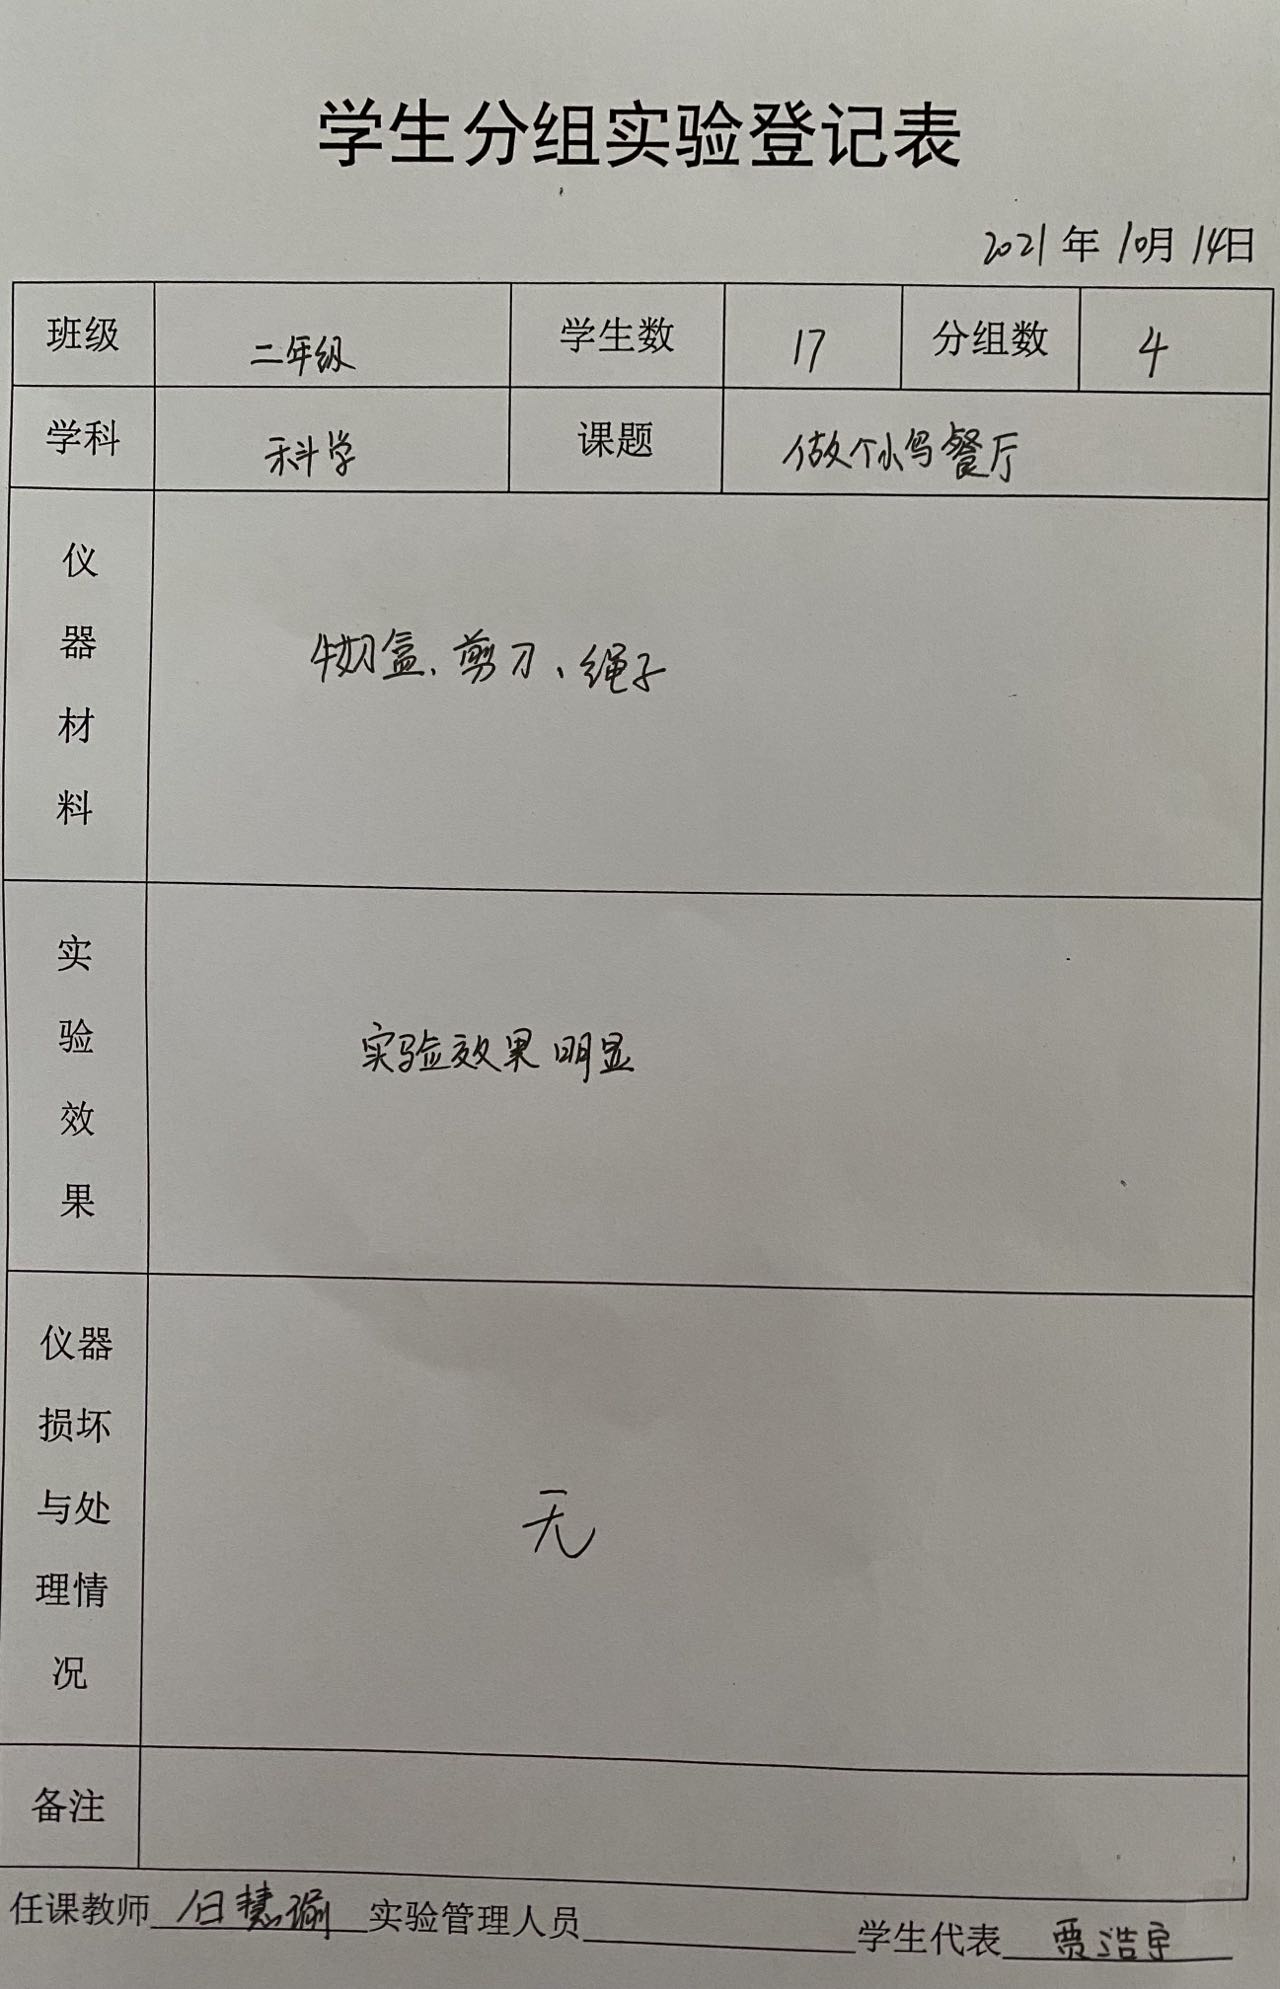 学生分组实验登记表
2021年10月14日
班级 二年级 学生数 17 分组数 4
学科 科学 课题 做个小鸟餐厅
仪器材料 牛奶盒、剪刀、绳子
实验效果 实验效果明显
仪器损坏与处理情况 无
备注
任课教师 白慧瑜 实验管理人员 学生代表 贾浩宇